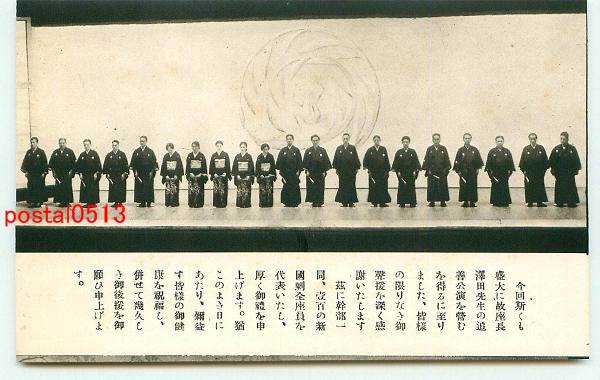 今回斯くも
盛大に故座長
澤田先生の追
善公演を營む
を得るに至り
ました、皆樣
の限りなき御
聲援を深く感
謝いたします
茲に幹部一
同、壹百の新
國劇全座員を
代表いたし、
厚く御禮を申
上げます。猶
このよき日に
あたり、彌益
す皆樣の御健
康を祝福し、
併せて幾久し
き御後援を御
願ひ申上げま
す。
postal0513